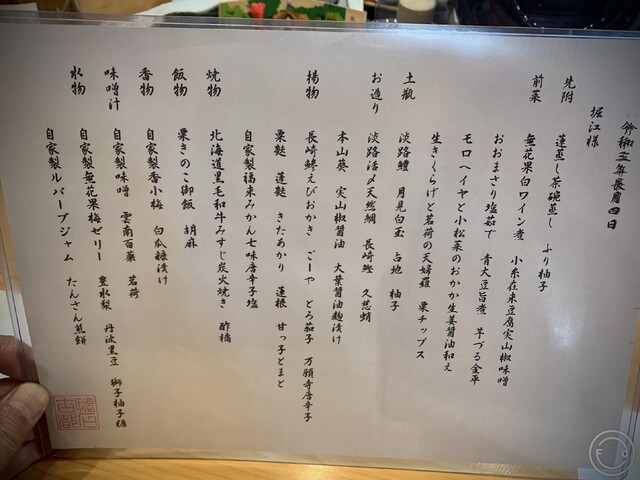 令和五年長月四日
堀江様
先附 蓮蒸し茶碗蒸し ふり柚子
前菜 無花果白ワイン煮 小糸在来豆腐実山椒味噌
おおまさり塩茹で 青大豆旨煮 芋づる金平
モロヘイヤと小松菜のおかか生姜醤油和え
生きくらげと茗荷の天婦羅 栗チップス
土瓶 淡路鱧 月見白玉 占地 柚子
お造り 淡路活〆天然鯛 長崎鰹 久慈蛸
本山葵 実山椒醤油 大葉醤油麹漬け
揚物 長崎鱚えびおかき ごーや とろ茄子 万願寺唐辛子
栗麩 蓮麩 きたあかり 蓮根 甘っ子とまと
自家製福来みかん七味唐辛子塩
焼物 北海道黒毛和牛みすじ炭火焼き 酢橘
飯物 栗きのこ御飯 胡麻
香物 自家製香小梅 白瓜糠漬け
味噌汁 自家製味噌 雲南百薬 茗荷
水物 自家製無花果梅ゼリー 豊水梨 丹波黒豆 獅子柚子糖
自家製ルバーブジャム たんさん煎餅